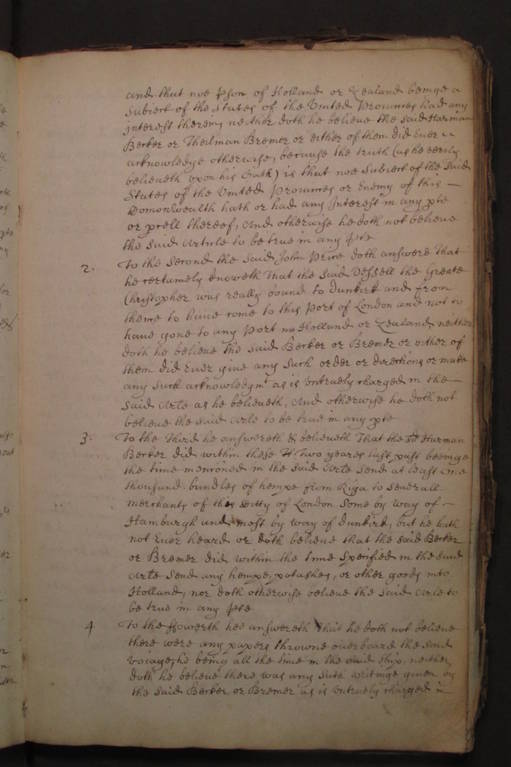 and that noe pson of Holland or Zealand beinge a
subiect of the States of the United Provinces had any
interest therein, neither doth he beleive the said Harman
Berker or Theilman Bremer or either of them did ever
acknowledge otherwise, because the truth (as he verily
beleiveth upon his Oath) is that noe subiect of the said
States of the United Provinces or Enemy of this
Comonwealth hath or had any Interest in any pte
or prcell thereof, And otherwise he doth not beleive
the said Article to be true in any pte
2. To the second the said John Price doth answere That
he certainely knoweth That the said Vessell the Greate
Christopher was really bound to Dunkirk and from
thence to have come to this Port of London and not to
have gone to any Port in Holland or Zealand neither
doth he beleive the said Berker or Bremer or either of
them did ever give any such order or directions or make
any such acknowledgmt as is untruely charged in the
said Arle as he beleiveth, And otherwise he doth not
beleive the said Arle to be true in any pte
3. To the third he answereth & beleiveth That the sd Harman
Berker did within these Two yeares last past beeinge
the time menconed in the said Arle send at least one
thousand bundles of hempe from Riga to severall
merchants of this Citty of London some by way of
Hamburgh and most by way of Dunkirk, but he hath
not ever heard or doth beleive that the said Berker
or Bremer did within the time specified in the said
Arle send any hempe, potashes, or other goods into
Holland, nor doth otherwise beleive the said Arle to
be true in any pte
4 To the Fowerth hee answereth That he doth not beleive
there were any papers throwne overboard the said
voyage, he being all the time in the said ship, neither
doth he beleive there was any such writinge given by
the said Berker or Bremer as is untruely charged in